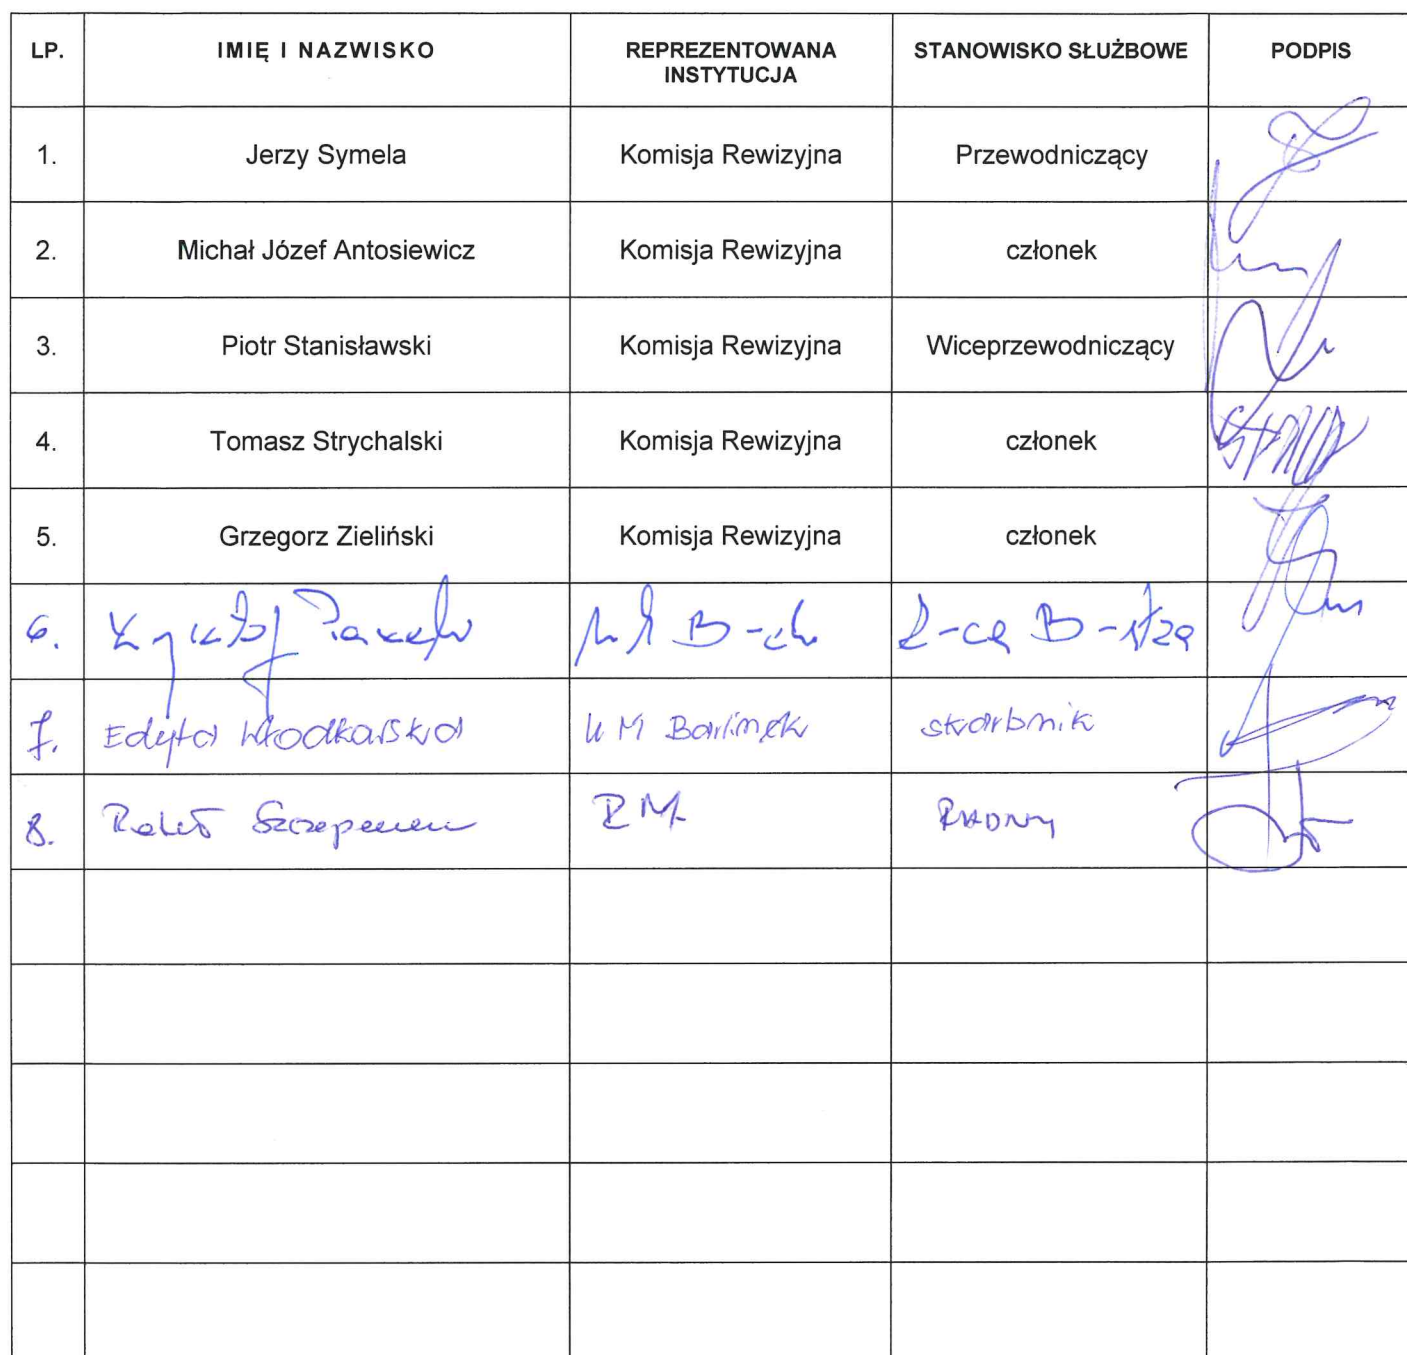 LP. IMIĘ I NAZWISKO REPREZENTOWANA INSTYTUCJA STANOWISKO SŁUŻBOWE PODPIS
1. Jerzy Symela Komisja Rewizyjna Przewodniczący
2. Michał Józef Antosiewicz Komisja Rewizyjna członek
3. Piotr Stanisławski Komisja Rewizyjna Wiceprzewodniczący
4. Tomasz Strychalski Komisja Rewizyjna członek
5. Grzegorz Zieliński Komisja Rewizyjna członek
6. B-ek Z-ca B-strza
7. Edyta Włodkarska UM Barlinek skarbnik
8. RM RADNY